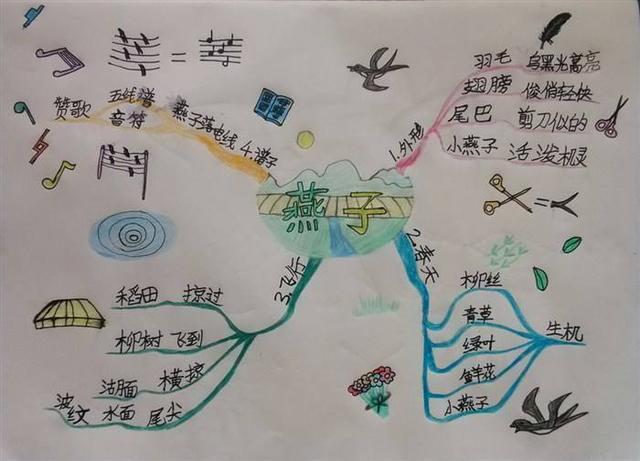 燕子
1.外形
羽毛 乌黑光亮
翅膀 俊俏轻快
尾巴 剪刀似的
小燕子 活泼机灵
2.春天
柳丝
青草
绿叶
鲜花
小燕子
生机
3.飞行
稻田 掠过
柳树 飞到
湖面 横掠
波纹 水面 尾尖
4.谱子
燕子落电线
五线谱
音符
赞歌